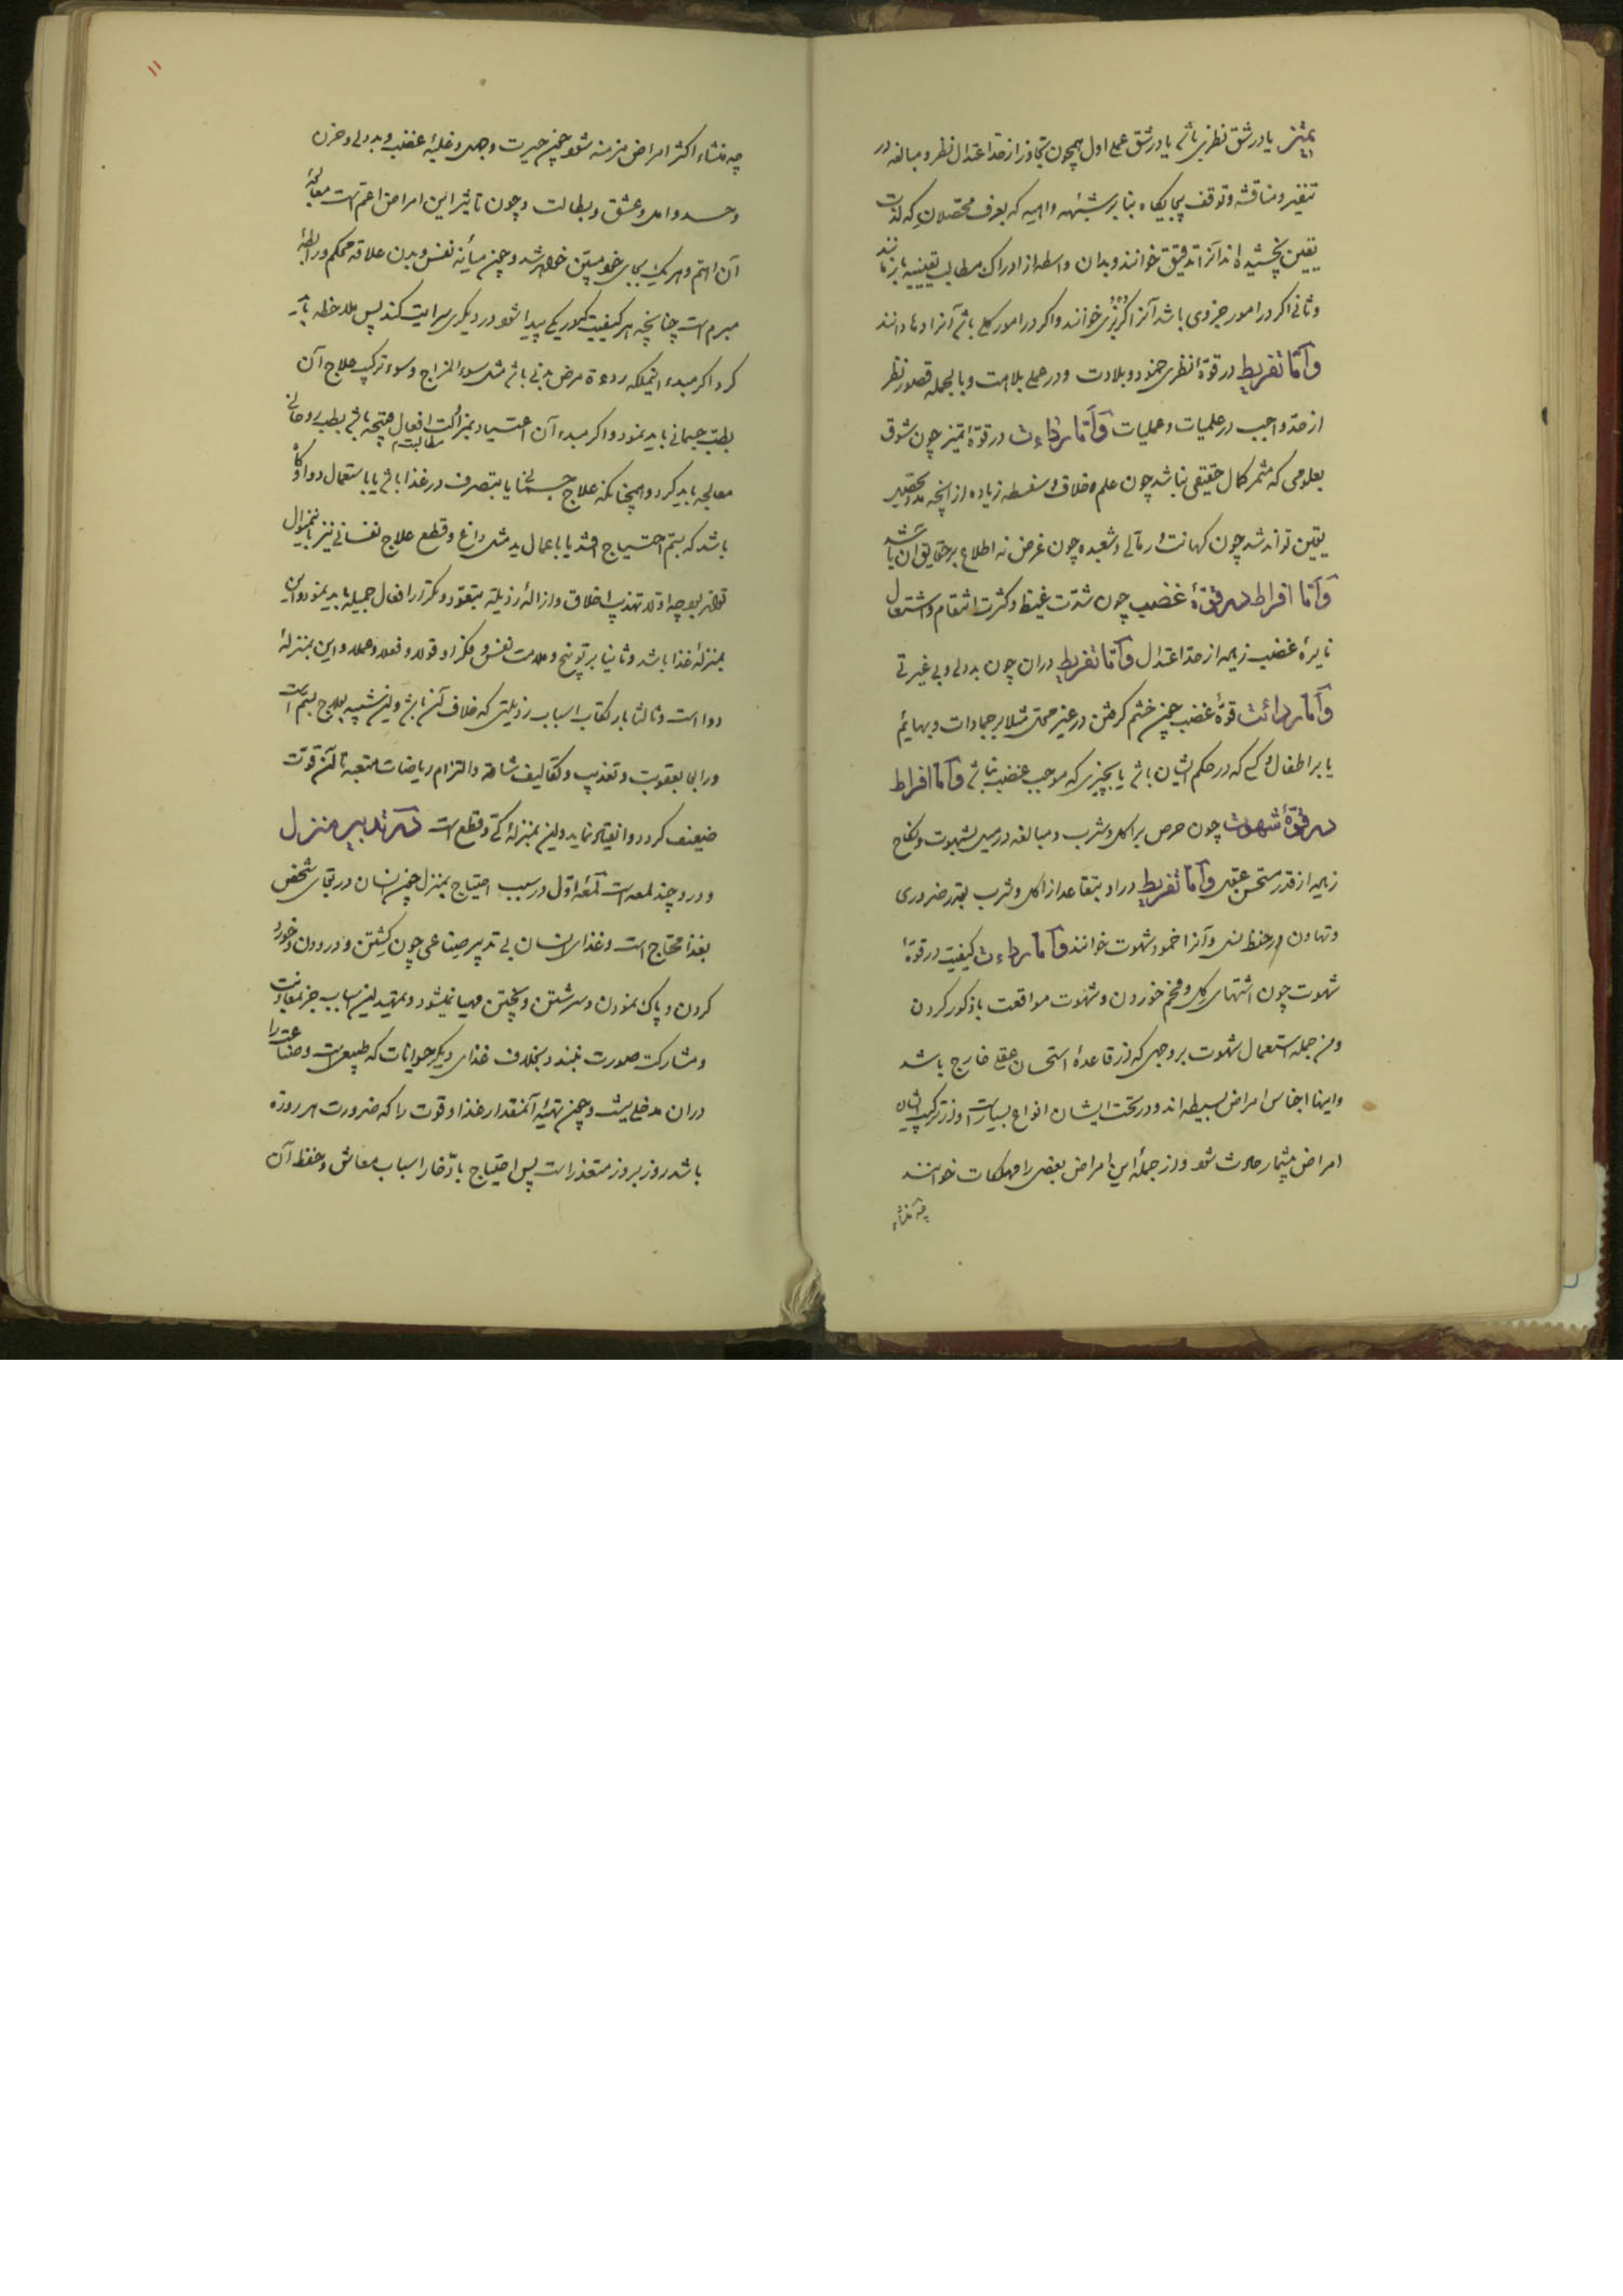 تمیز یا در شق نظری باشد یا در شق عملی اول همچون تجاوز از حد اعتدال نظر و مبالغه در
تنفیر و مناقشه و توقف بیجایگاه بنابر شبهه واهیه که بعرف محصلان که لذت
یقین نچشیده اند آنرا تدقیق خوانند و بدان واسطه از ادراک مطالب یقینیه باز مانند
و ثانی اگر در امور جزوی باشد آنرا گربزی خوانند و اگر در امور کلی باشد آنرا دها دانند
و اما تفریط در قوة نظری خمود و بلادت و در عملی بلاهت و بالجمله قصور نظر
از حد واجب در علمیات و عملیات و اما رداءت در قوة تمیز چون شوق
بعلومی که مثمر کمال حقیقی نباشد چون علم خلاف و سفسطه زیاده از آنچه ممد تحصیل
یقین تواند شد چون کهانت و رمالی و شعبده چون غرض نه اطلاع بر حقایق آن باشد
و اما افراط در قوة غضب چون شدت غیظ و کثرت انتقام و اشتعال
نایرة غضب زیاده از حد اعتدال و اما تفریط در آن چون بددلی و بی غیرتی
و اما ردائت قوة غضب چون خشم گرفتن در غیر محل مثلا بر جمادات و بهایم
یا بر اطفال و کسی که در حکم ایشان باشد یا بچیزی که موجب غضب نباشد و اما افراط
در قوة شهوت چون حرص بر اکل و شرب و مبالغه در میل بشهوت و نکاح
زیاده از قدر مستحسن عقل و اما تفریط در او بتقاعد از اکل و شرب بقدر ضروری
و تهاون در حفظ نسل و آنرا خمود شهوت خوانند و اما رداءت کیفیت در قوة
شهوت چون اشتهای گل و فحم خوردن و شهوت مواقعت با ذکور کردن
و من جمله استعمال شهوت بر وجهی که از قاعدة استحسان عقلی خارج باشد
و اینها اجناس امراض بسیطه اند و در تحت ایشان انواع بسیارست و از ترکیب ایشان
امراض بیشمار حادث شود و از جملة این امراض بعضی را مهلکات خوانند
چه منشاء
۱۱
چه منشاء اکثر امراض مزمنه شود چون حیرت و جهل و غلبة غضب و بددلی و حزن
و حسد و امل و عشق و بطالت و چون تاثیر این امراض اعم است معالجة
آن اهم و هر یک بجای خود مبین خواهد شد و چون میانه نفس و بدن علاقه محکم و رابطة
مبرم است چنانچه هر کیفیت که در یکی پیدا شود در دیگری سرایت کند پس ملاحظه باید
کرد اگر مبدء اینملکه رداءة مرض بدنی باشد مثل سوء المزاج و سوء ترکیب علاج آن
بطب جسمانی باید نمود و اگر مبدء آن اعتیاد بمزاولت افعال قبیحه باشد بطب روحانی
معالجه باید کرد و همچنانکه علاج جسمانی یا بتصرف در غذا باشد یا باستعمال دوا و گاه
باشد که بسم احتیاج افتد یا باعمال ید مثل داغ و قطع علاج نفسانی نیز باینمنوال
تواند بود چه اولا تهذیب اخلاق و ازالة رذیله بتعود و تکرار افعال جمیله باید نمود و این
بمنزلة غذا باشد و ثانیا بر توبیخ و ملامت نفس و فکرا و قولا و فعلا و عملا و این بمنزلة
دوا است و ثالثا بارتکاب اسباب رذیلتی که خلاف آن باشد و این شبیه بعلاج بسم است
و رابعا بعقوبت و تعذیب و تکالیف شاقه و التزام ریاضات متعبه تا آن قوت
ضعیف گردد و انقیاد نماید و این بمنزلة کی و قطع است در تدبیر منزل
و در و چند لمعه است لمعه اول در سبب احتیاج بمنزل چون انسان در بقای شخص
بغذا محتاج است و غذای انسان بی تدبیر صناعی چون کشتن و درودن و خورد
کردن و پاک نمودن و سرشتن و پختن مهیا نمیشود و تمهید این اسباب جز بمعاونت
و مشارکت صورت نبندد بخلاف غذای دیگر حیوانات که طبیعی است و صناعت را
در آن مدخلی نیست و چون تهیة آنمقدار غذا و قوت را که ضرورت هر روزه
باشد روز بروز متعذر است پس احتیاج بادخار اسباب معاش و حفظ آن